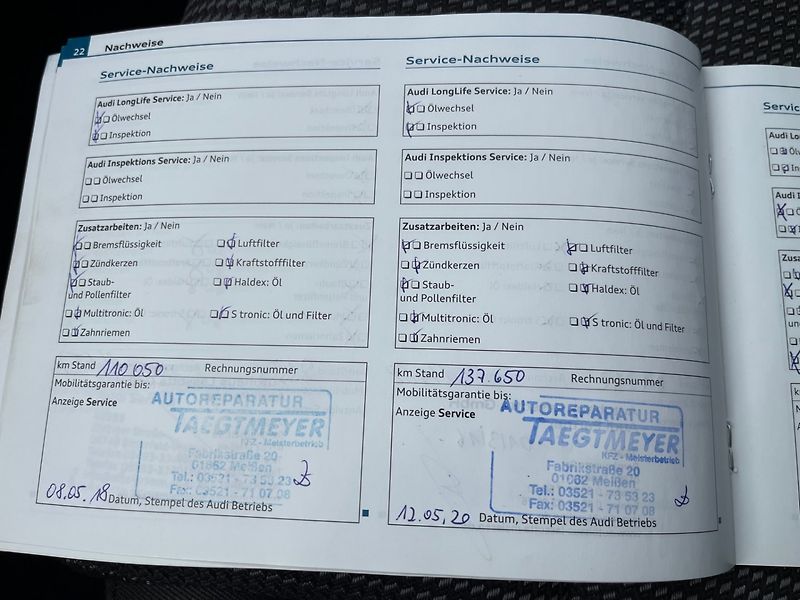 22 Nachweise
Service-Nachweise
Audi LongLife Service: Ja / Nein
Ölwechsel
Inspektion
Audi Inspektions Service: Ja / Nein
Ölwechsel
Inspektion
Zusatzarbeiten: Ja / Nein
Bremsflüssigkeit Luftfilter
Zündkerzen Kraftstofffilter
Staub- Haldex: Öl
und Pollenfilter
Multitronic: Öl S tronic: Öl und Filter
Zahnriemen
km Stand 110 050 Rechnungsnummer
Mobilitätsgarantie bis:
Anzeige Service
AUTOREPARATUR
TAEGTMEYER
KFZ - Meisterbetrieb
Fabrikstraße 20
01662 Meißen
Tel.: 03521 - 73 53 23
Fax: 03521 - 71 07 08
08.05.18 Datum, Stempel des Audi Betriebs
Service-Nachweise
Audi LongLife Service: Ja / Nein
Ölwechsel
Inspektion
Audi Inspektions Service: Ja / Nein
Ölwechsel
Inspektion
Zusatzarbeiten: Ja / Nein
Bremsflüssigkeit Luftfilter
Zündkerzen Kraftstofffilter
Staub- Haldex: Öl
und Pollenfilter
Multitronic: Öl S tronic: Öl und Filter
Zahnriemen
km Stand 137.650 Rechnungsnummer
Mobilitätsgarantie bis:
Anzeige Service
AUTOREPARATUR
TAEGTMEYER
KFZ - Meisterbetrieb
Fabrikstraße 20
01662 Meißen
Tel.: 03521 - 73 53 23
Fax: 03521 - 71 07 08
12.05,20 Datum, Stempel des Audi Betriebs
Servic
Audi Lo
Öl
In
Audi I
Ö
Zusa
km S
Mobi
Anze